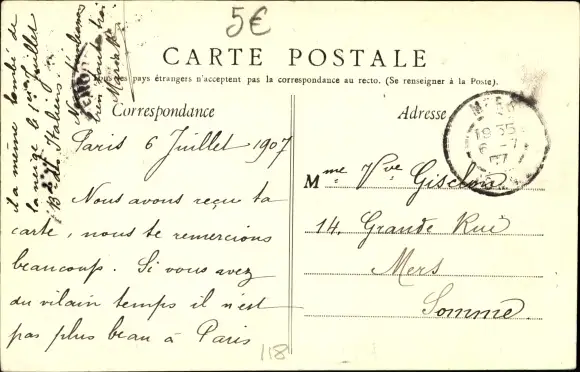 5€
CARTE POSTALE
pays étrangers n'acceptent pas la correspondance au recto. (Se renseigner à la Poste).
Correspondance
Adresse
Paris 6 Juillet 1907
Nous avons reçu ta
carte, nous te remercions
beaucoup. Si vous avez
du vilain temps il n'est
pas plus beau à Paris
il a même tombé de
la neige le 1er Juillet
Bd des Italiens.
Mme Vve
14. Grande Rue
Mers
Somme.
MERS
6 -7
07
118